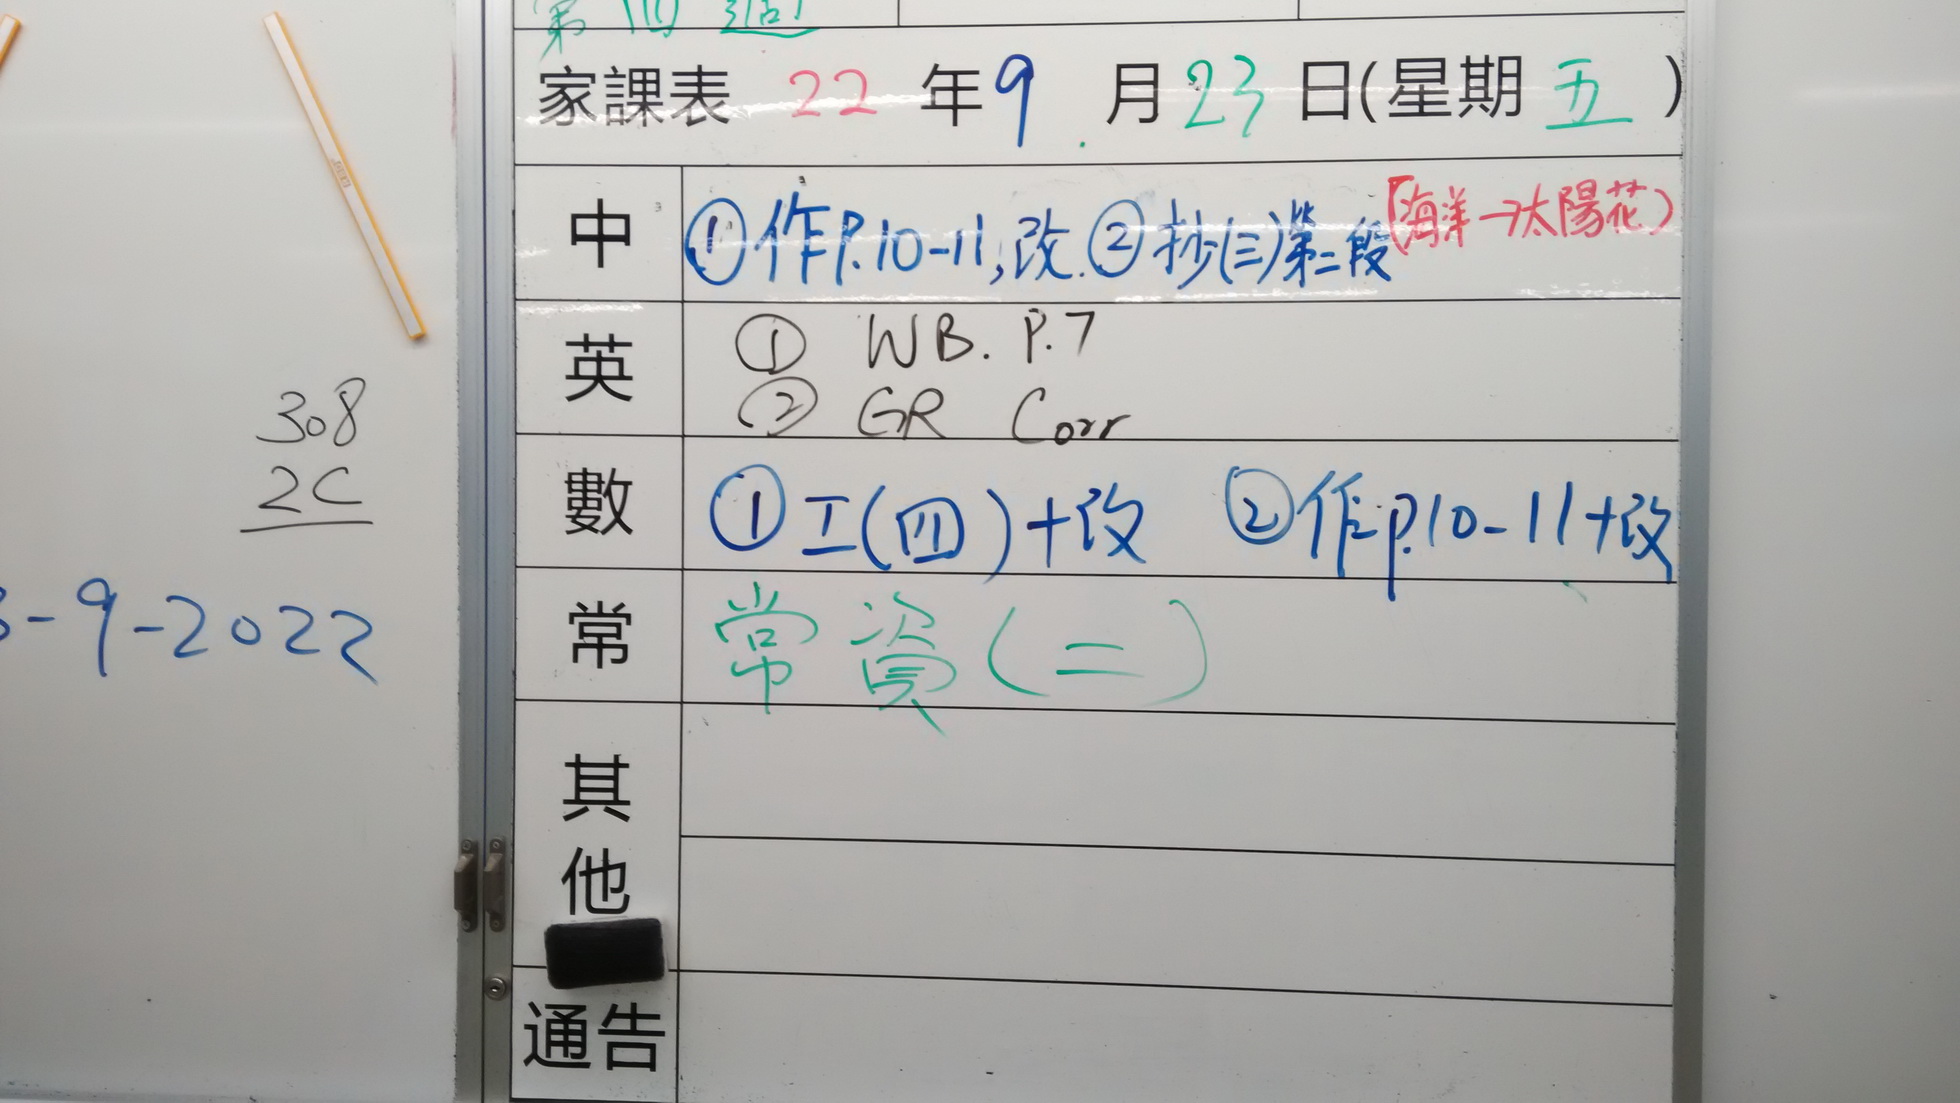 第四週
家課表 22 年 9 月 23 日(星期 五 )
中 ①作P.10-11,改. ②抄(三)第二段(海洋→太陽花)
英 ① WB. P.7
② GR Corr
數 ①工(四)+改 ②作P.10-11+改
常 常資(二)
其他
通告
308
2C
-9-2022